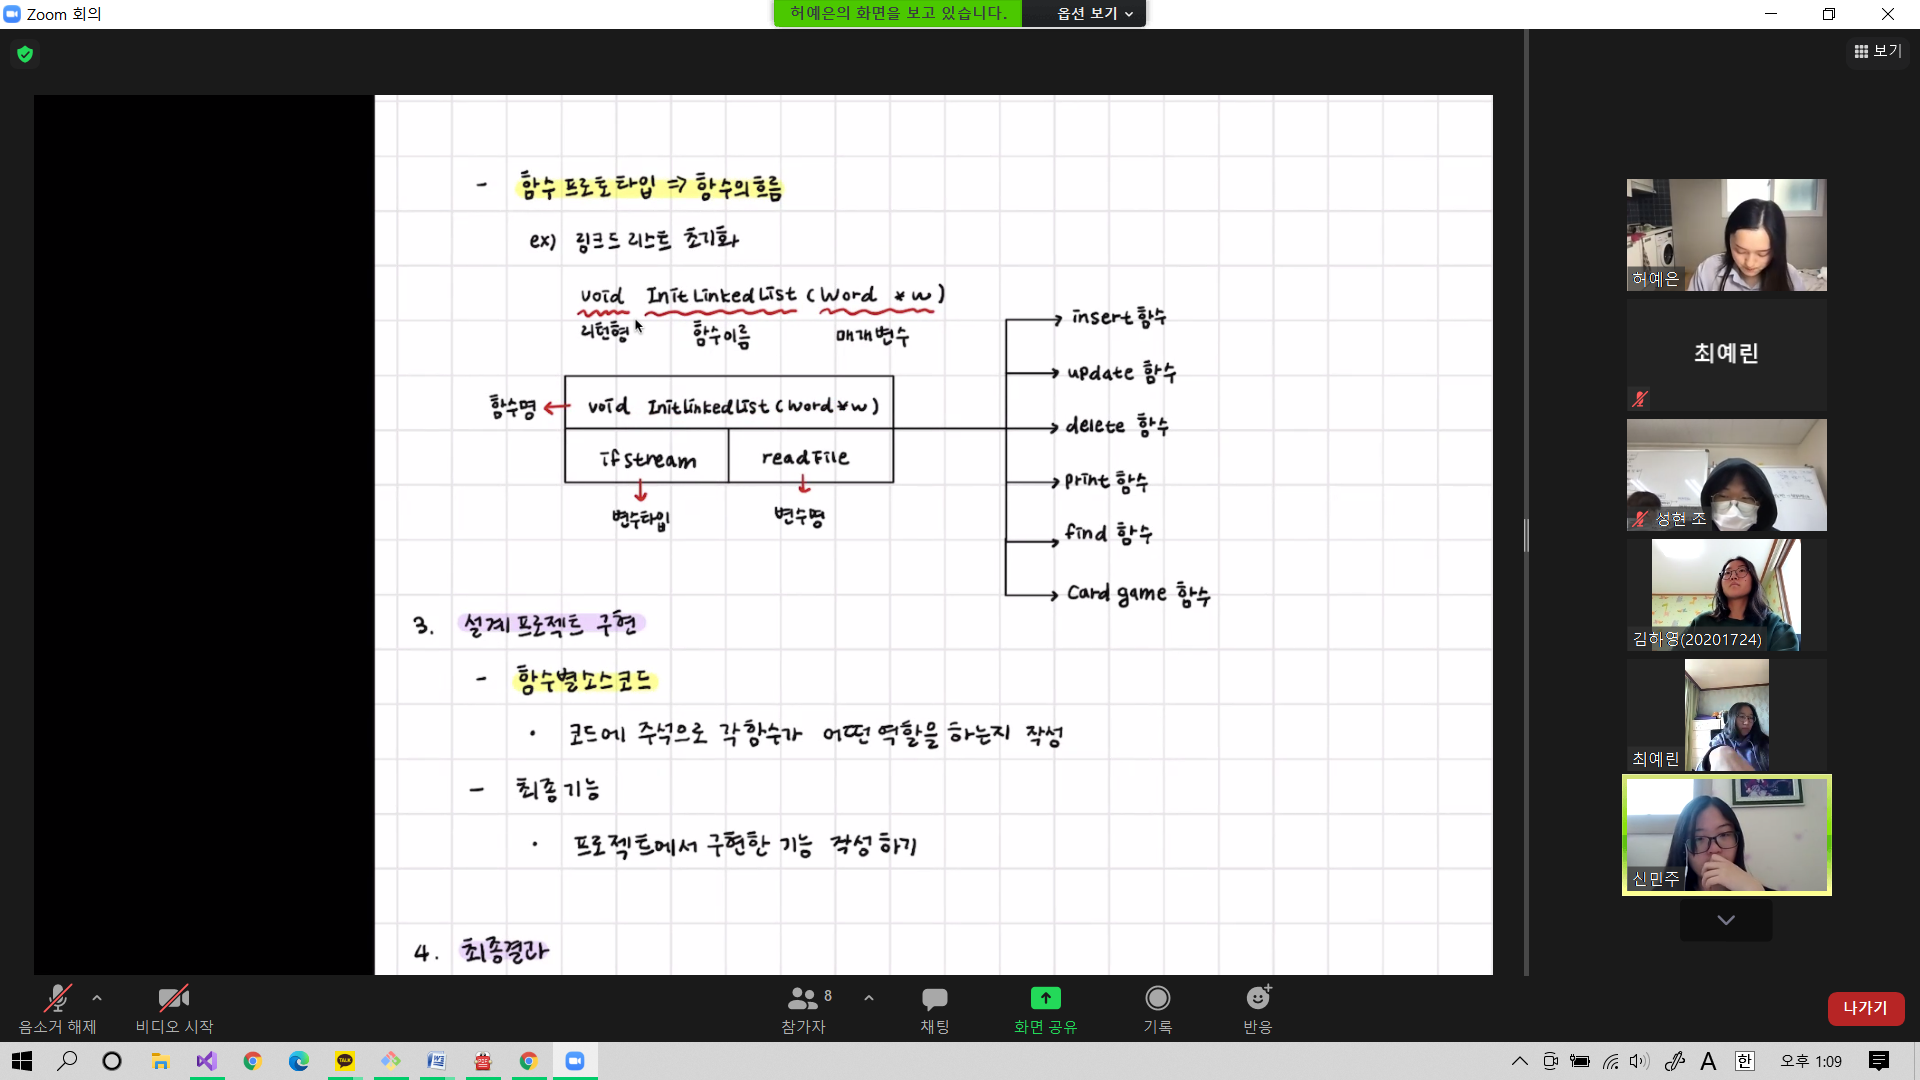 Zoom 회의
허예은의 화면을 보고 있습니다.
옵션 보기
보기
- 함수 프로토타입 => 함수의 흐름
ex) 링크드 리스트 초기화
void InitLinkedList (Word *w)
리턴형 함수이름 매개변수
함수명 ← void InitLinkedList (Word *w)
ifstream readFile
변수타입 변수명
insert 함수
update 함수
delete 함수
print 함수
find 함수
Card game 함수
3. 설계 프로젝트 구현
- 함수별 소스코드
• 코드에 주석으로 각 함수가 어떤 역할을 하는지 작성
- 최종 기능
• 프로젝트에서 구현한 기능 작성하기
4. 최종결과
허예은
최예린
성현 조
김하영(20201724)
최예린
신민주
음소거 해제
비디오 시작
참가자
8
채팅
화면 공유
기록
반응
나가기
TALK
A
한
오후 1:09